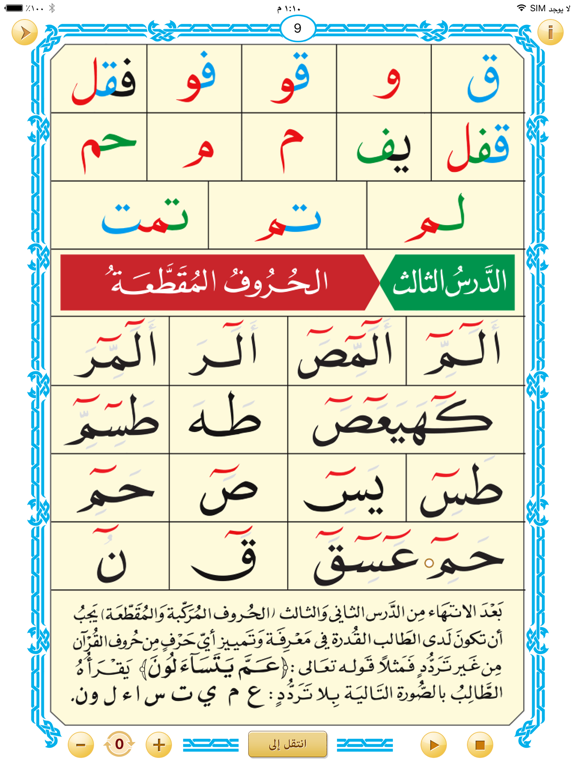 لا يوجد SIM
١:١٠ م
٪١٠٠
9
ق و قو فو فقل
قفل يف م م حم
لم تم تمت
الدَّرسُ الثالث الحُرُوفُ المُقَطَّعَةُ
الٓمٓ الٓمٓصٓ الٓر الٓمٓر
كٓهيعٓصٓ طه طسٓمٓ
طسٓ يسٓ صٓ حمٓ
حمٓ عٓسٓقٓ قٓ نٓ
بَعْدَ الانتهَاء مِن الدَّرس الثاني وَالثالث (الحُروف المُرَكَّبة وَالمُقَطَّعَة) يَجبُ
أن تكونَ لَدى الطالب القُدرة في مَعْرفَة وَتَمييز أيّ حَرْفٍ مِن حُروف القُرآن
مِن غَير تَردُّدٍ فَمَثلاً قَوله تعالى: ﴿عَمَّ يَتَسَاءَلُونَ﴾ يَقْرَأُهُ
الطَّالِبُ بالصُّورَة التاليَة بِلا تَردُّدٍ: ع م ي ت س ا ء ل و ن.
0
انتقل إلى